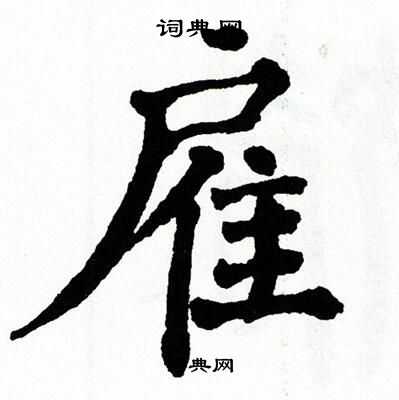 词典网
雇
典网